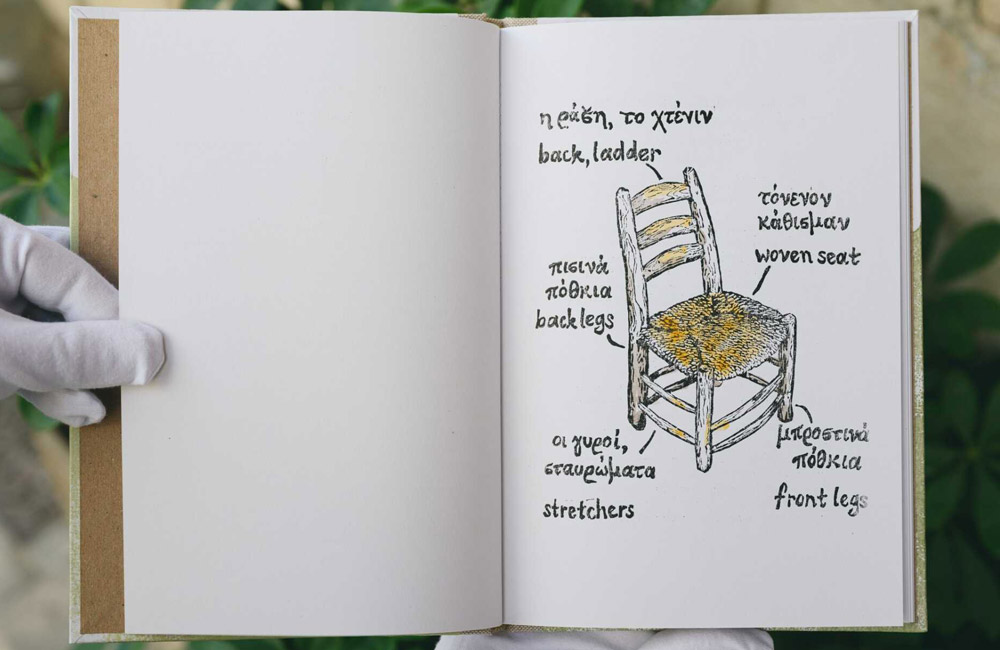 η ράξη, το χτένιν
back, ladder
τόνενον
κάθισμαν
woven seat
πισινά
πόθκια
back legs
οι γυροί,
σταυρώματα
stretchers
μπροστινά
πόθκια
front legs